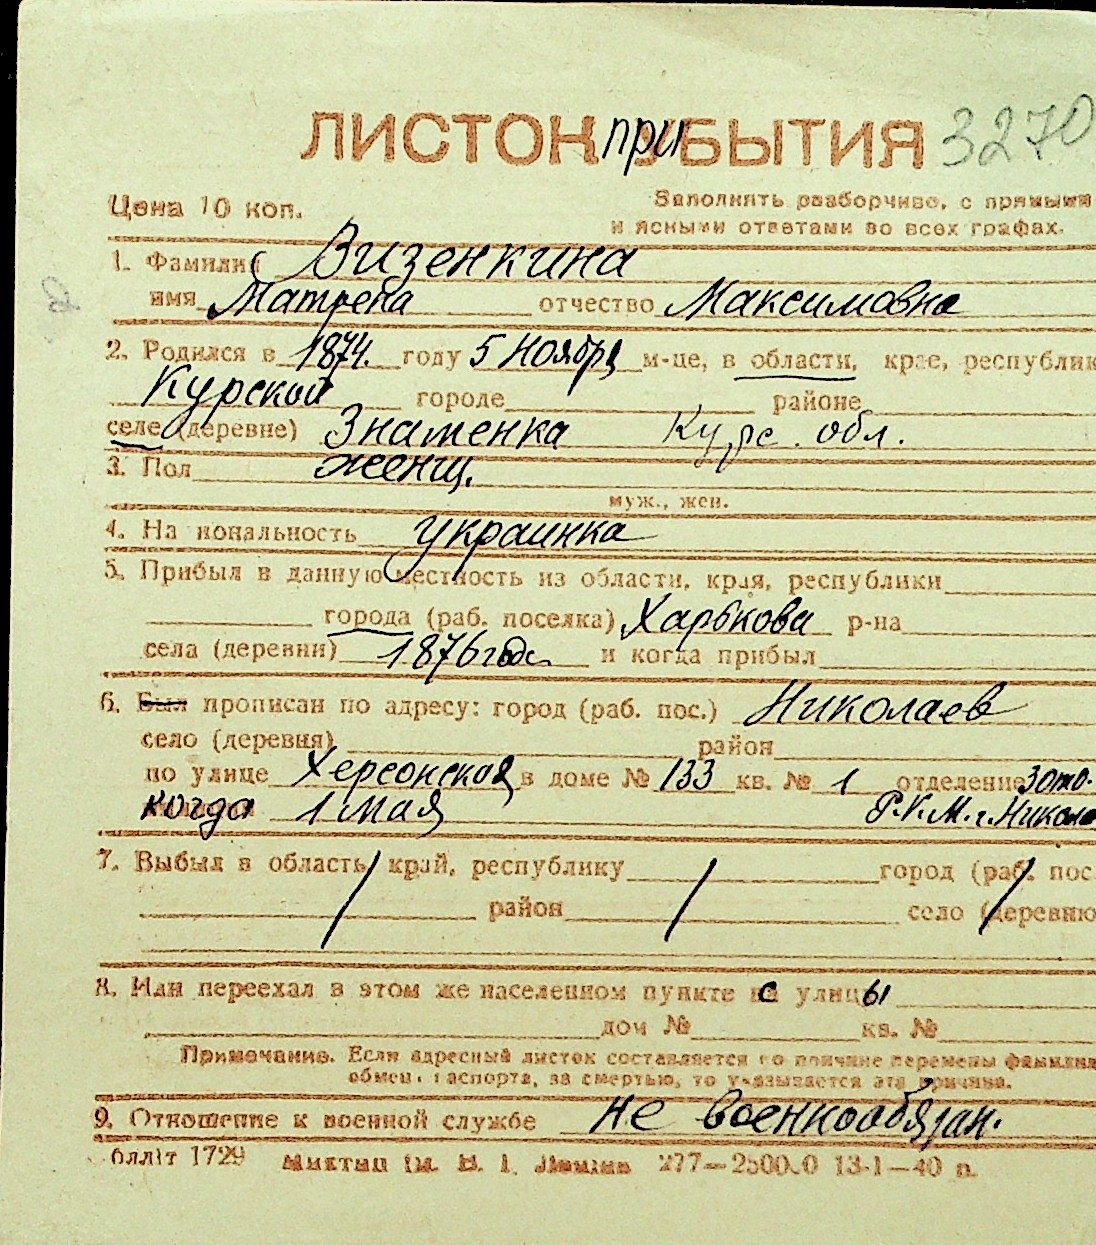 ЛИСТОК при БЫТИЯ 3270
Цена 10 коп. Заполнять разборчиво, с прямыми
и ясными ответами во всех графах.
1. Фамилия Визенкина
имя Матрена отчество Максимовна
2. Родился в 1874. году 5 Ноября м-це, в области, крае, республик
Курской городе районе
селе (деревне) Знаменка Курс. обл.
3. Пол женщ.
муж., жен.
4. Национальность украинка
5. Прибыл в данную местность из области, края, республики
города (раб. поселка) Харькова р-на
села (деревни) 1876 года и когда прибыл
6. Был прописан по адресу: город (раб. пос.) Николаев
село (деревня) район
по улице Херсонской в доме № 133 кв. № 1 отделение 3 отд.
когда 1 мая Р.К.М. г. Никола
7. Выбыл в область, край, республику город (раб. пос.
район село (деревню
8. Или переехал в этом же населенном пункте с улицы
дом № кв. №
Примечание. Если адресный листок составляется по причине перемены фамилии
обмен паспорта, за смертью, то указывается эта причина.
9. Отношение к военной службе не военнообязан.
1729 им. В. І. Леніна 277—250000 13-1—40 п.